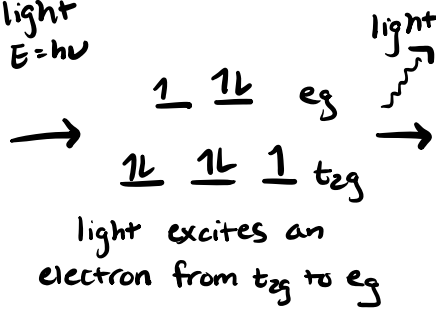 light
E=hν
light
1 1L eg
1L 1L 1 t2g
light excites an
electron from t2g to eg